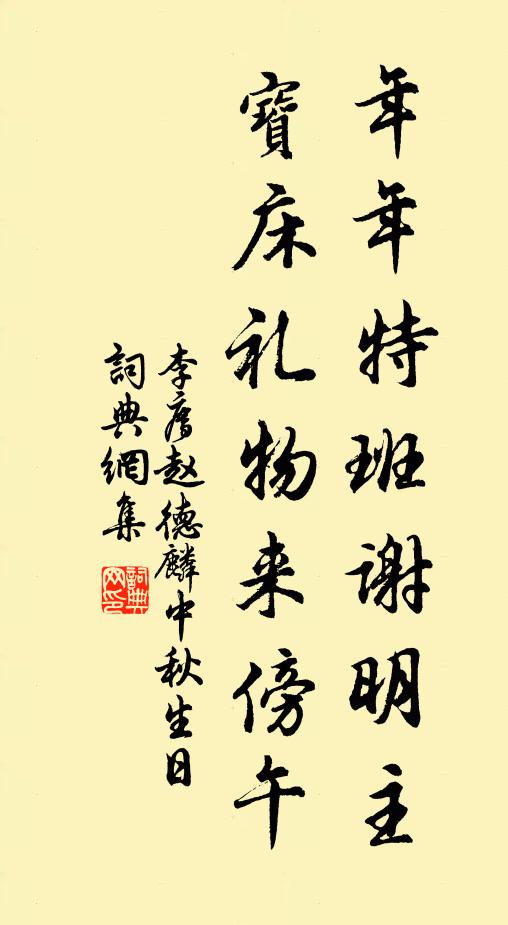 年年特班谢明主
寶床礼物来傍午
李廌赵德麟中秋生日
詞典網集
詞典
网印